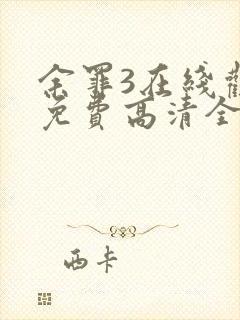 余罪3在线
免费高清全
西卡